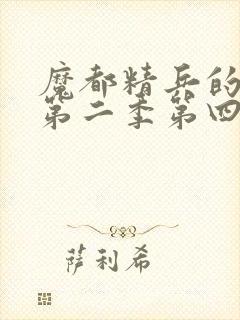 魔都精兵的
第二季第四
萨利希